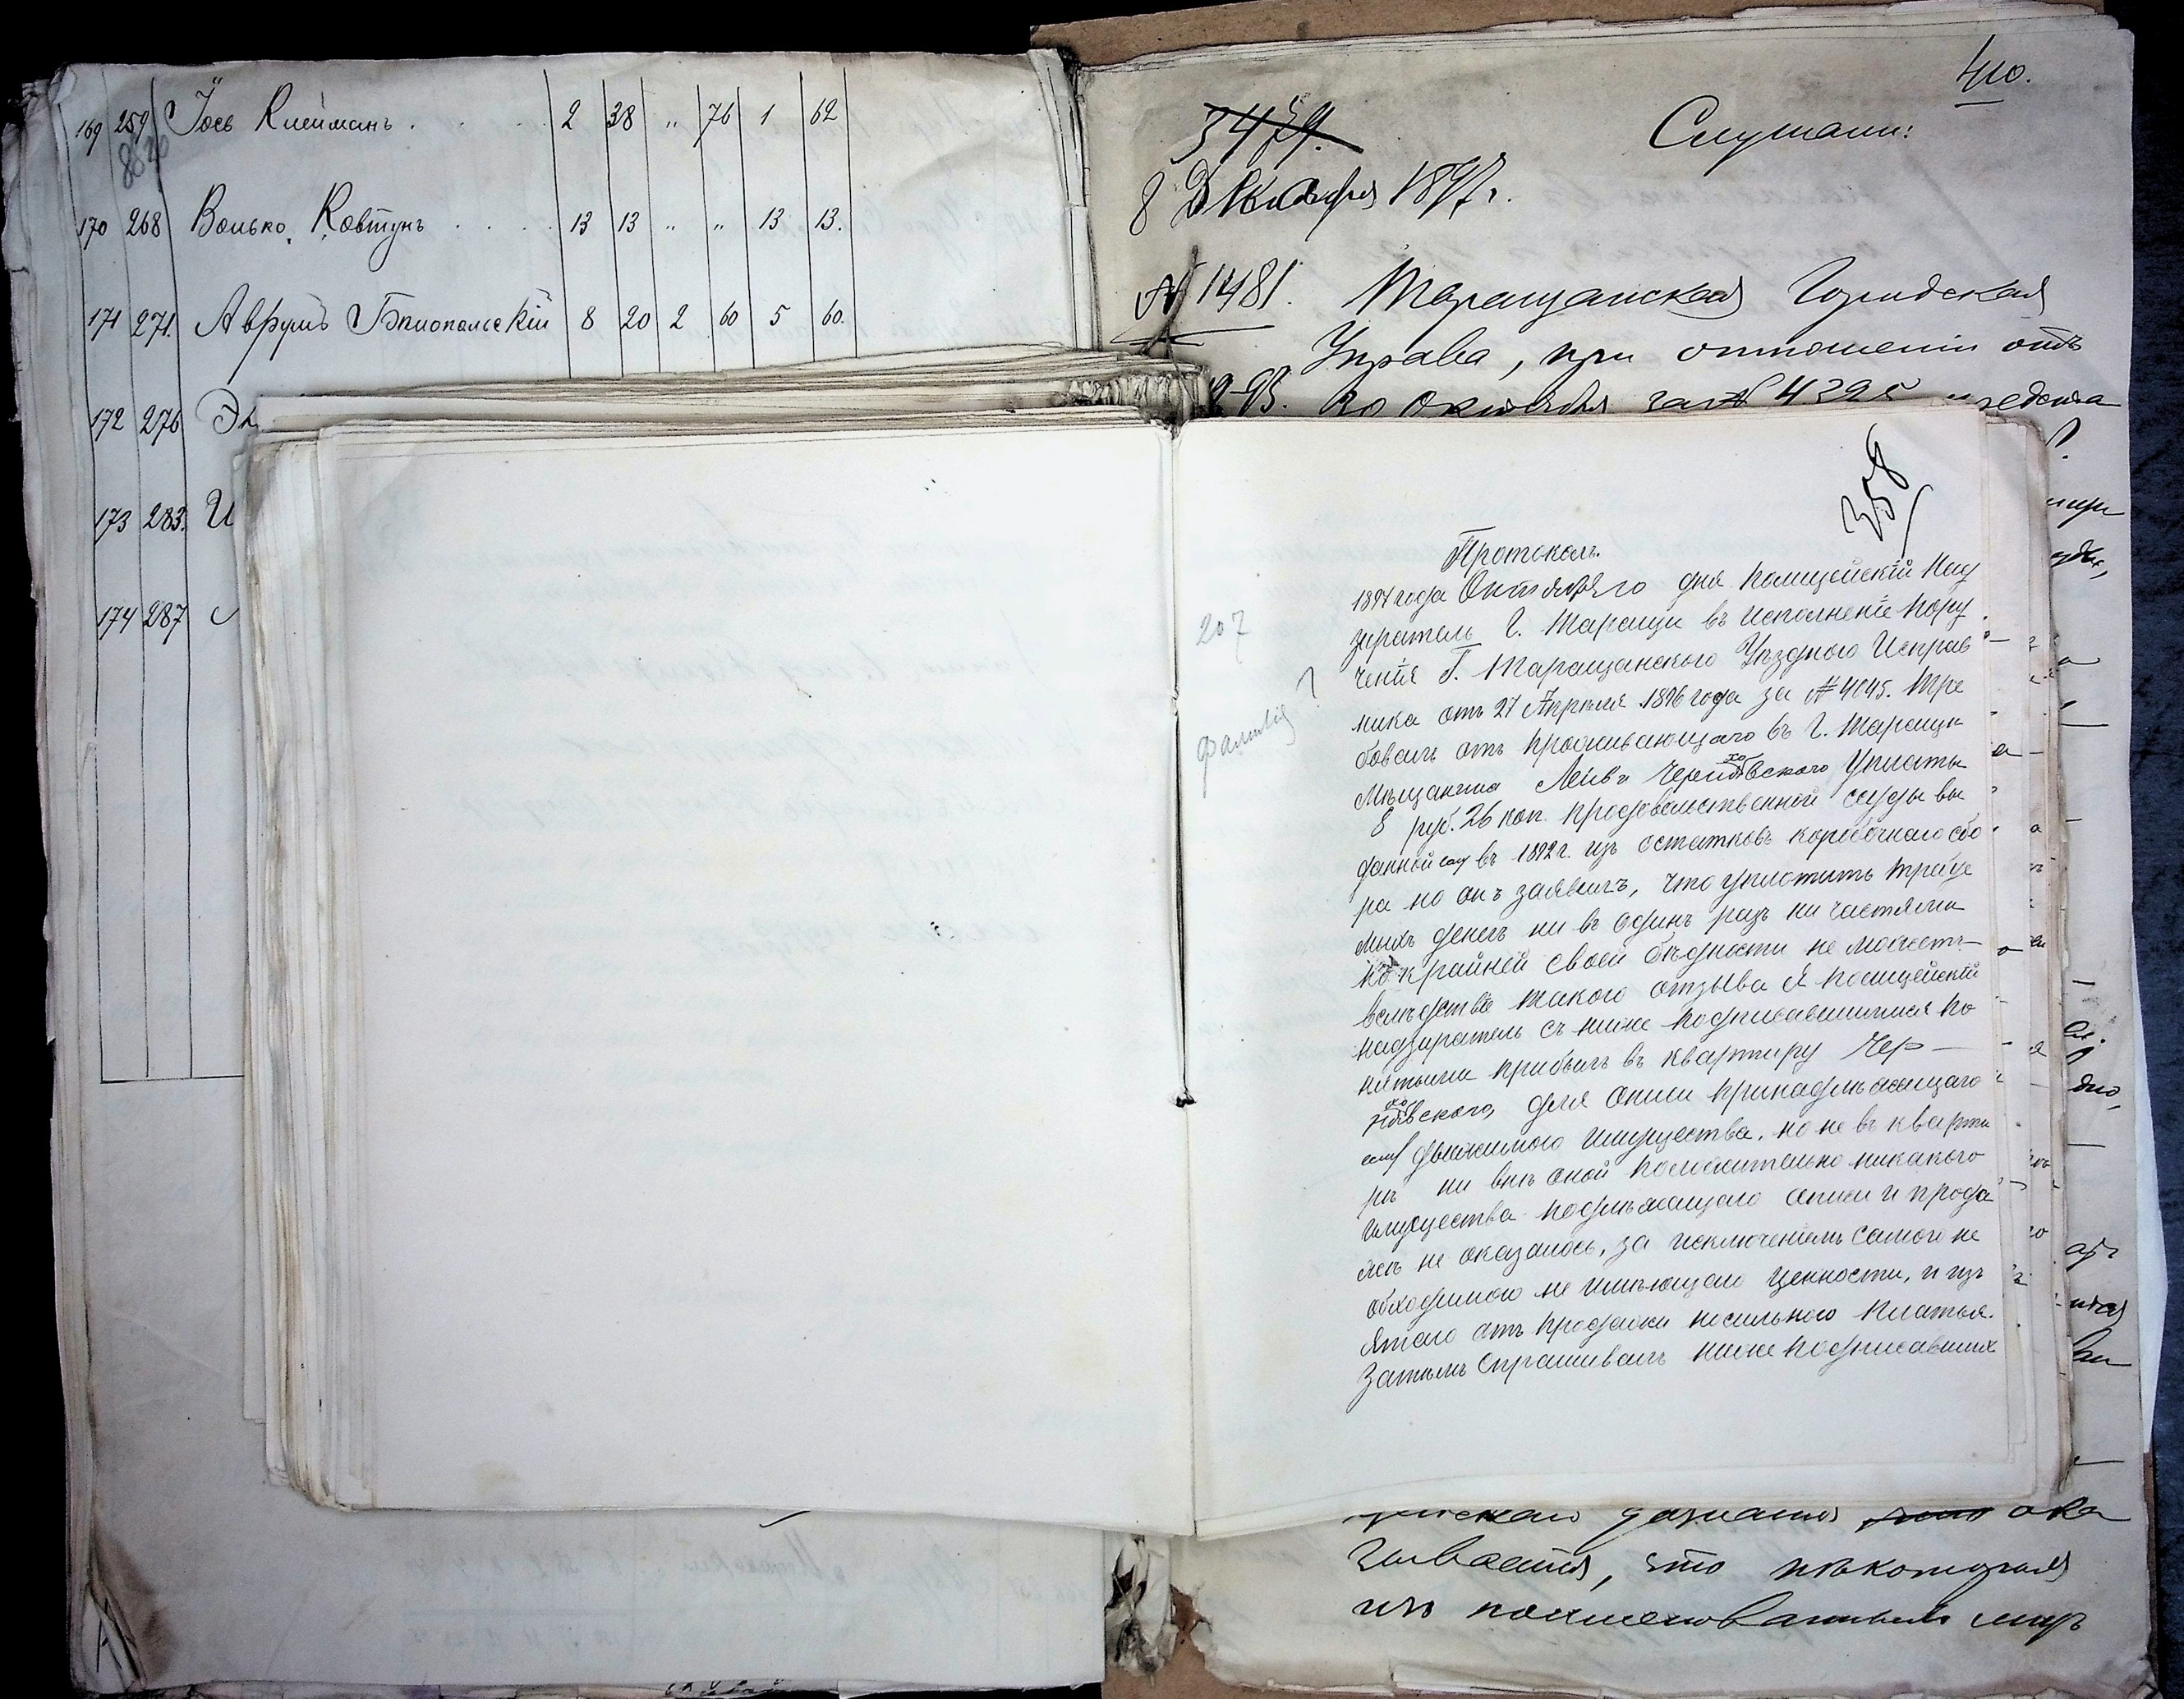 169 259 Іось Клейманъ . . . 2 38 „ 76 1 62
170 268 Волько Ковтунъ . . . . 13 13 „ „ 13 13.
171 271. Аврумъ Бѣлопольскій 8 20 2 60 5 60.
172 276
173 283. И
174 287
410.
3479.
Слушали:
8 Декабря 1897 г.
№ 1481. Таращанская Городская
Управа, при отношеніи отъ
30 Октября за №
358
Протоколъ.
1897 года Октября 10 дня Полицейскій Над
207
зиратель г. Таращи въ исполненіе пору
ченія Г. Таращанскаго Уѣзднаго Исправ
ника отъ 27 Апрѣля 1896 года за № 4045. тре
бовалъ отъ проживающаго въ г. Таращѣ
фамилія ?
Мѣщанина Лейбы Черняховскаго уплаты
8 руб. 26 коп. продовольственной ссуды вы
данной ему въ 1892 г. изъ остатковъ коробочнаго сбо
ра но онъ заявилъ, что уплатить требуе
мыхъ денегъ ни въ одинъ разъ ни частями
по крайней своей бѣдности не можетъ—
вслѣдствіе такого отзыва я Полицейскій
надзиратель съ ниже подписавшимися по
нятыми прибылъ въ квартиру Чер—
няховскаго, для описи принадлежащаго
ему движимаго имущества, но не въ кварти
рѣ ни внѣ оной положительно никакого
имущества подлежащаго описи и прода
жѣ не оказалось, за исключеніемъ самого не
обходимого не имѣющаго цѣнности, и изъ
ятаго отъ продажи носильного платья.
Затѣмъ спрашивалъ нижеподписавшихъ
дознанія ока
зывается, что нѣкоторыя
изъ поименованныхъ лицъ